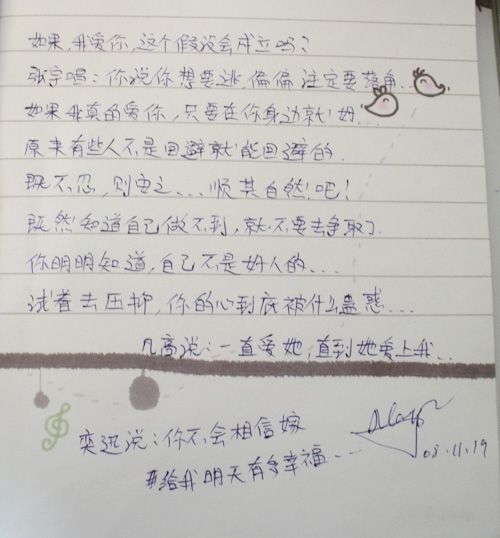 如果,我爱你,这个假设会成立吗?
张宇唱:你说你想要逃,偏偏注定要落角...
如果我真的爱你,只要在你身边就好...
原来有些人不是回避就能回避的.
既不忍,则安之...顺其自然吧!
既然知道自己做不到,就不要去争取了.
你明明知道,自己不是好人的...
试着去压抑,你的心到底被什么蛊惑...
凡高说:一直爱她,直到她爱上我...
奕迅说:你不会相信嫁
给我明天有多幸福...
08.11.19